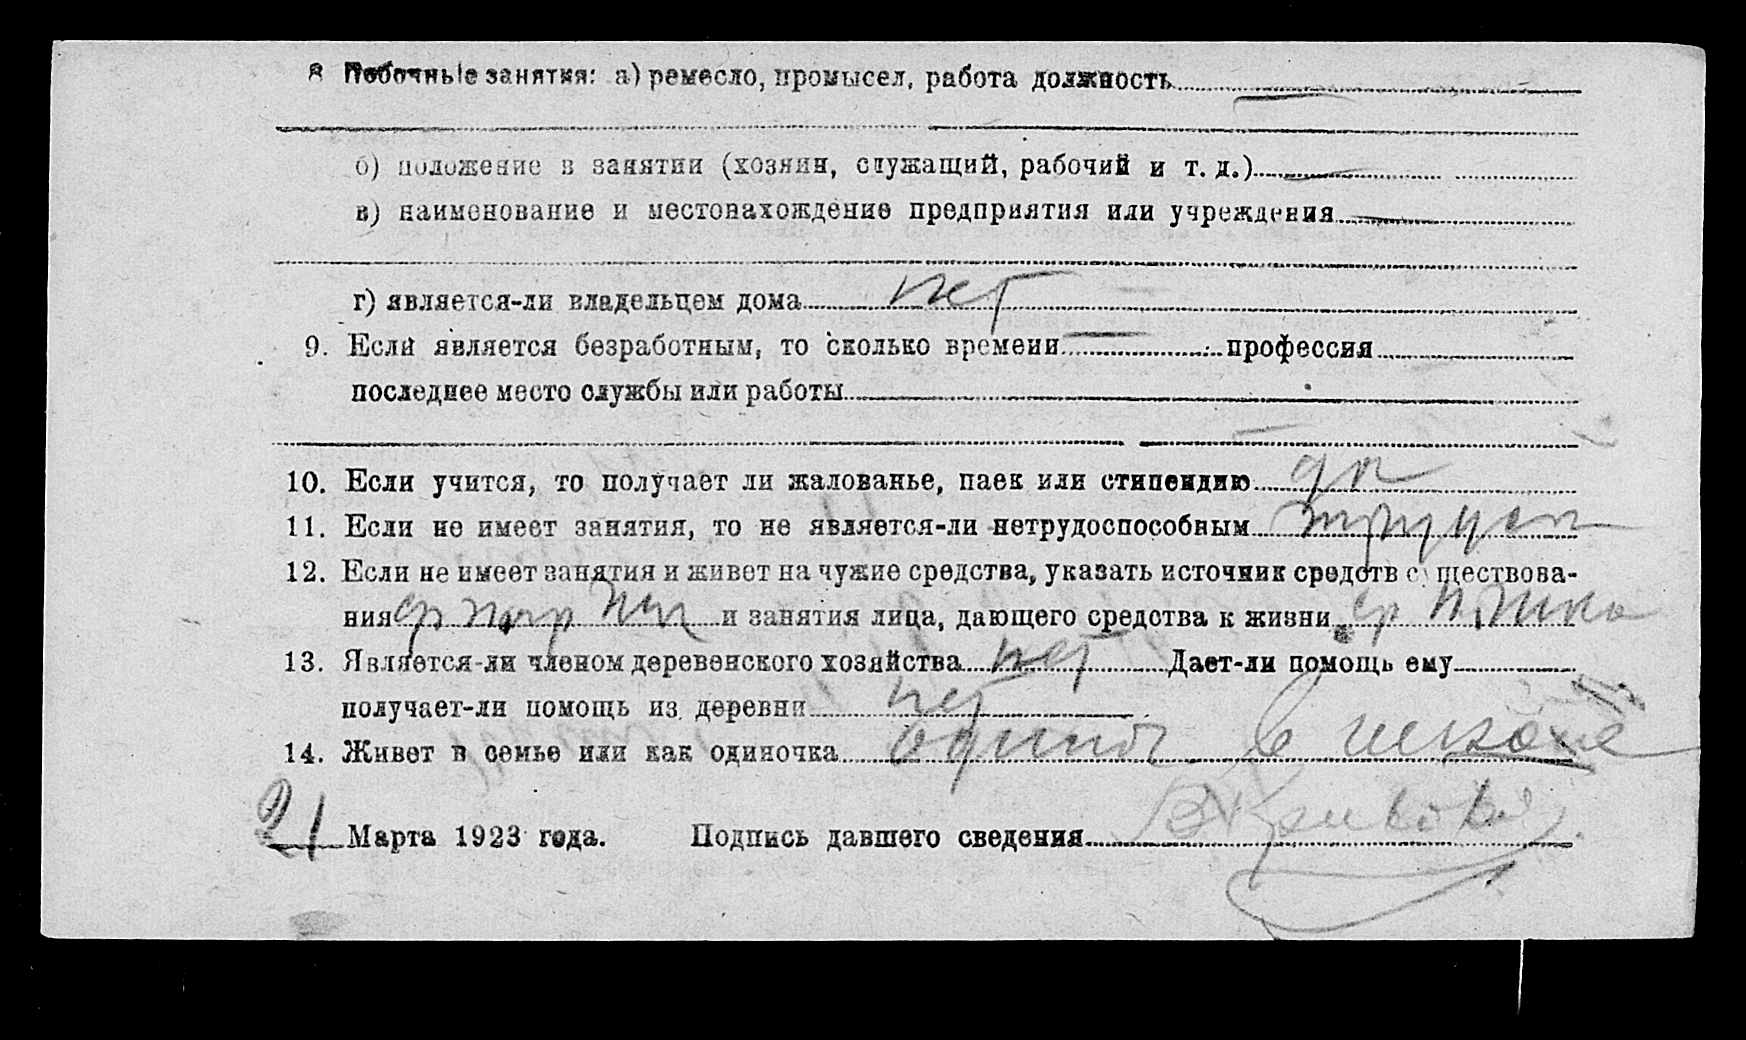 8 Побочные занятия: а) ремесло, промысел, работа должность
б) положение в занятии (хозяин, служащий, рабочий и т. д.)
в) наименование и местонахождение предприятия или учреждения
г) является-ли владельцем дома нет
9. Если является безработным, то сколько времени профессия
последнее место службы или работы
10. Если учится, то получает ли жалованье, паек или стипендию да
11. Если не имеет занятия, то не является-ли нетрудоспособным
12. Если не имеет занятия и живет на чужие средства, указать источник средств существова-
ния и занятия лица, дающего средства к жизни
13. Является-ли членом деревенского хозяйства нет Дает-ли помощь ему
получает-ли помощь из деревни нет
14. Живет в семье или как одиночка в школе
21 Марта 1923 года. Подпись давшего сведения